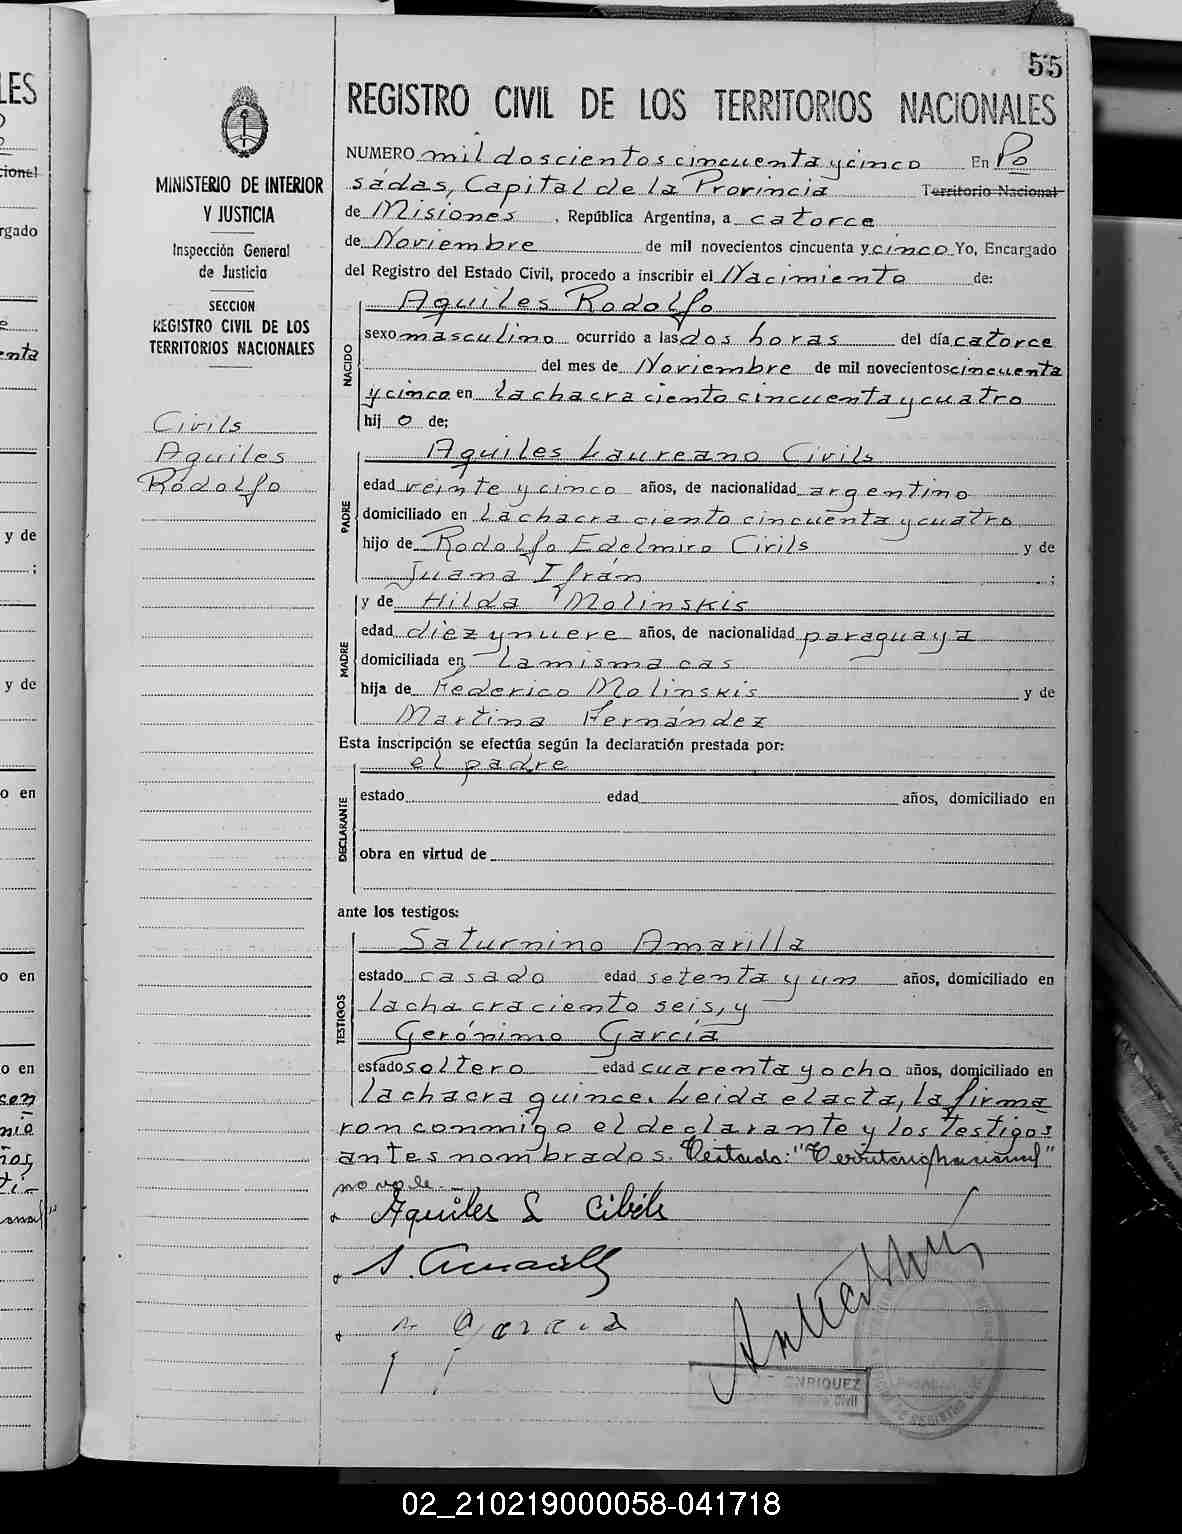 55
REGISTRO CIVIL DE LOS TERRITORIOS NACIONALES
MINISTERIO DE INTERIOR
Y JUSTICIA
Inspección General
de Justicia
SECCION
REGISTRO CIVIL DE LOS
TERRITORIOS NACIONALES
Civils
Aquiles
Rodolfo
NUMERO mil doscientos cincuenta y cinco En Po
sadas, Capital de la Provincia Territorio Nacional
de Misiones, República Argentina, a catorce
de Noviembre de mil novecientos cincuenta y cinco Yo, Encargado
del Registro del Estado Civil, procedo a inscribir el Nacimiento de:
NACIDO
Aquiles Rodolfo
sexo masculino ocurrido a las dos horas del día catorce
del mes de Noviembre de mil novecientos cincuenta
y cinco en la chacra ciento cincuenta y cuatro
hij o de:
PADRE
Aquiles Laureano Civils
edad veinte y cinco años, de nacionalidad argentino
domiciliado en la chacra ciento cincuenta y cuatro
hijo de Rodolfo Edelmiro Civils y de
Juana Ifrán ;
MADRE
y de Hilda Molinskis
edad diez y nueve años, de nacionalidad paraguaya
domiciliada en la misma cas
hija de Federico Molinskis y de
Martina Fernández
Esta inscripción se efectúa según la declaración prestada por:
DECLARANTE
el padre
estado edad años, domiciliado en
obra en virtud de
ante los testigos:
TESTIGOS
Saturnino Amarilla
estado casado edad setenta y un años, domiciliado en
la chacra ciento seis, y
Gerónimo García
estado soltero edad cuarenta y ocho años, domiciliado en
la chacra quince. Leida el acta, la firma
ron conmigo el declarante y los testigos
antes nombrados. Testado: "Territorio Nacional"
no vale.
Aquiles L Cibils
S. Amarilla
Garcia
ENRIQUEZ
02_210219000058-041718